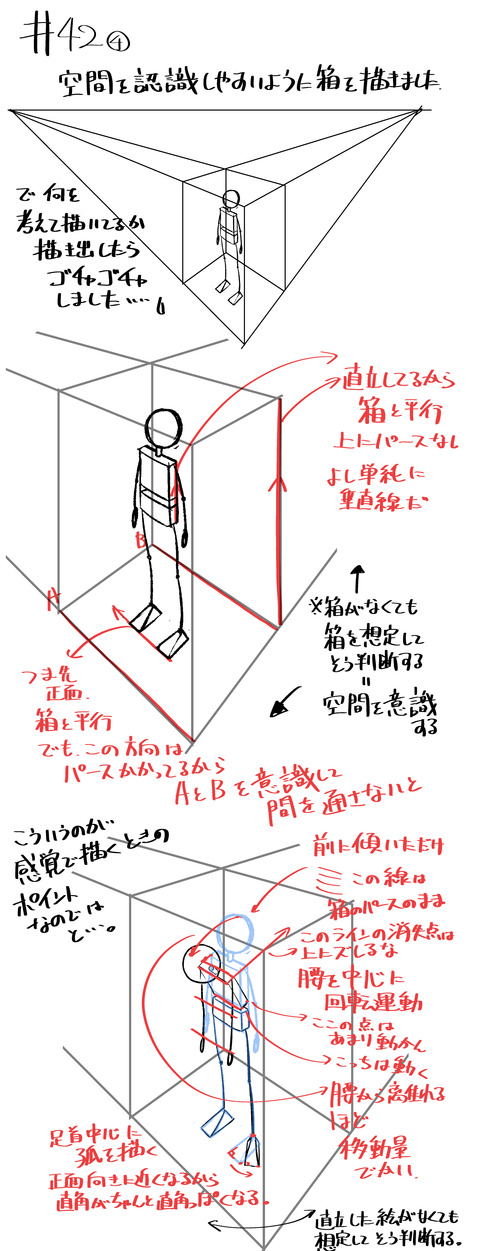 #42④
空間を認識しやすいように箱を描きました。
で何を
考えて描いてるか
描き出したら
ゴチャゴチャ
しました……。
直立してるから
箱と平行
上にパースなし
よし単純に
垂直線だ
A
B
※箱がなくても
箱を想定して
そう判断する
=
空間を意識
する
つま先
正面。
箱と平行
でも、この方向は
パースかかってるから
AとBを意識して
間を通さないと
こういうのが
感覚で描くときの
ポイント
なのでは
と…。
前に傾いただけ
この線は
箱のパースのまま
このラインの消失点は
上にズレるな
腰を中心に
回転運動
ここの点は
あまり動かん
こっちは動く
腰から離れる
ほど
移動量
でかい
足首中心に
弧を描く
正面向きに近くなるから
直角がちゃんと直角っぽくなる。
直立した絵がなくても
想定してそう判断する。